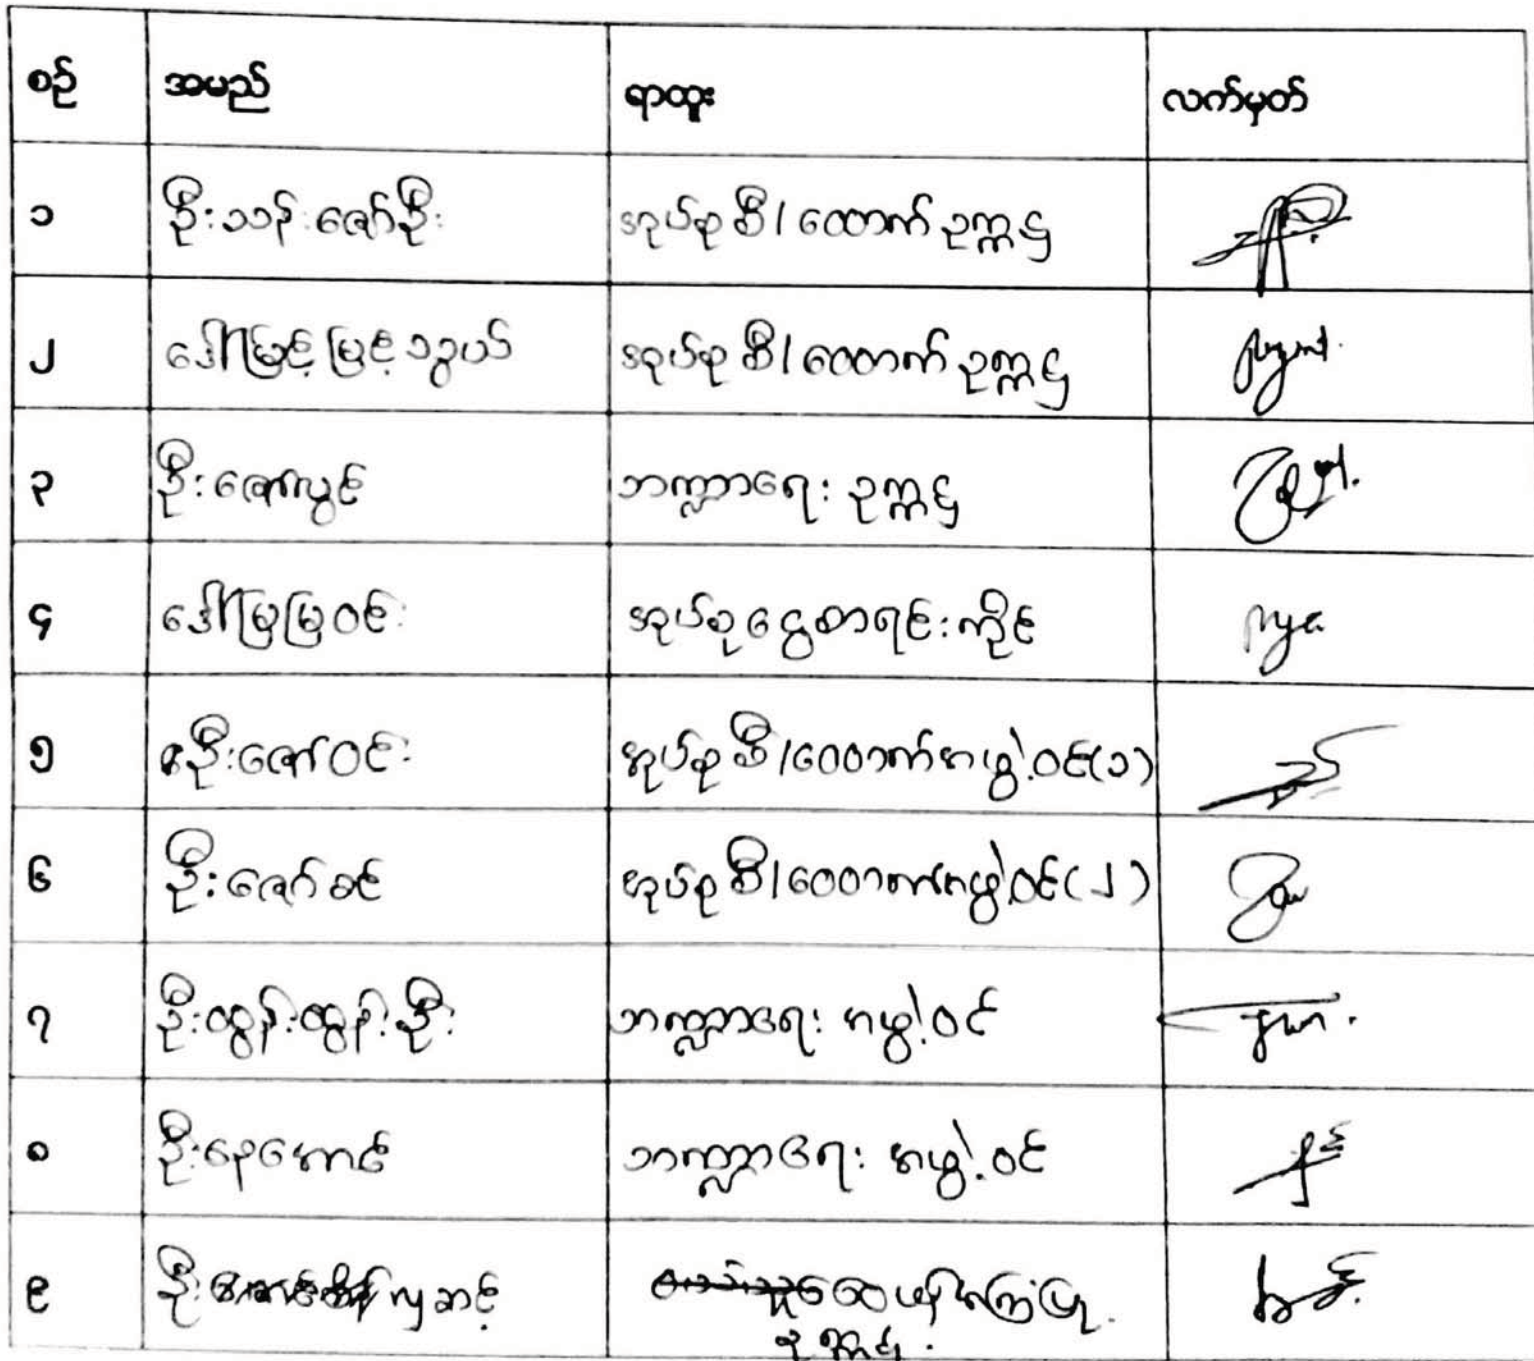 စဉ် အမည် ရာထူး လက်မှတ်
၁ ဦးသန်းဇော်ဦး အုပ်စုစီ/ထောက်ဥက္ကဌ
၂ ဒေါ်မြင့်မြင့်သွယ် အုပ်စုစီ/ထောက်ဥက္ကဌ
၃ ဦးဇော်လွင် ဘဏ္ဍာရေး ဥက္ကဌ
၄ ဒေါ်မြမြဝင်း အုပ်စုငွေစာရင်းကိုင်
၅ ဦးဇော်ဝင်း အုပ်စုစီ/ထောက်အဖွဲ့ဝင်(၁)
၆ ဦးဇော်ခင် အုပ်စုစီ/ထောက်အဖွဲ့ဝင်(၂)
၇ ဦးထွန်းထွန်းဦး ဘဏ္ဍာရေး အဖွဲ့ဝင်
၈ ဦးနေအောင် ဘဏ္ဍာရေး အဖွဲ့ဝင်
၉ ဦး လှဆင့်
ဥက္ကဌ